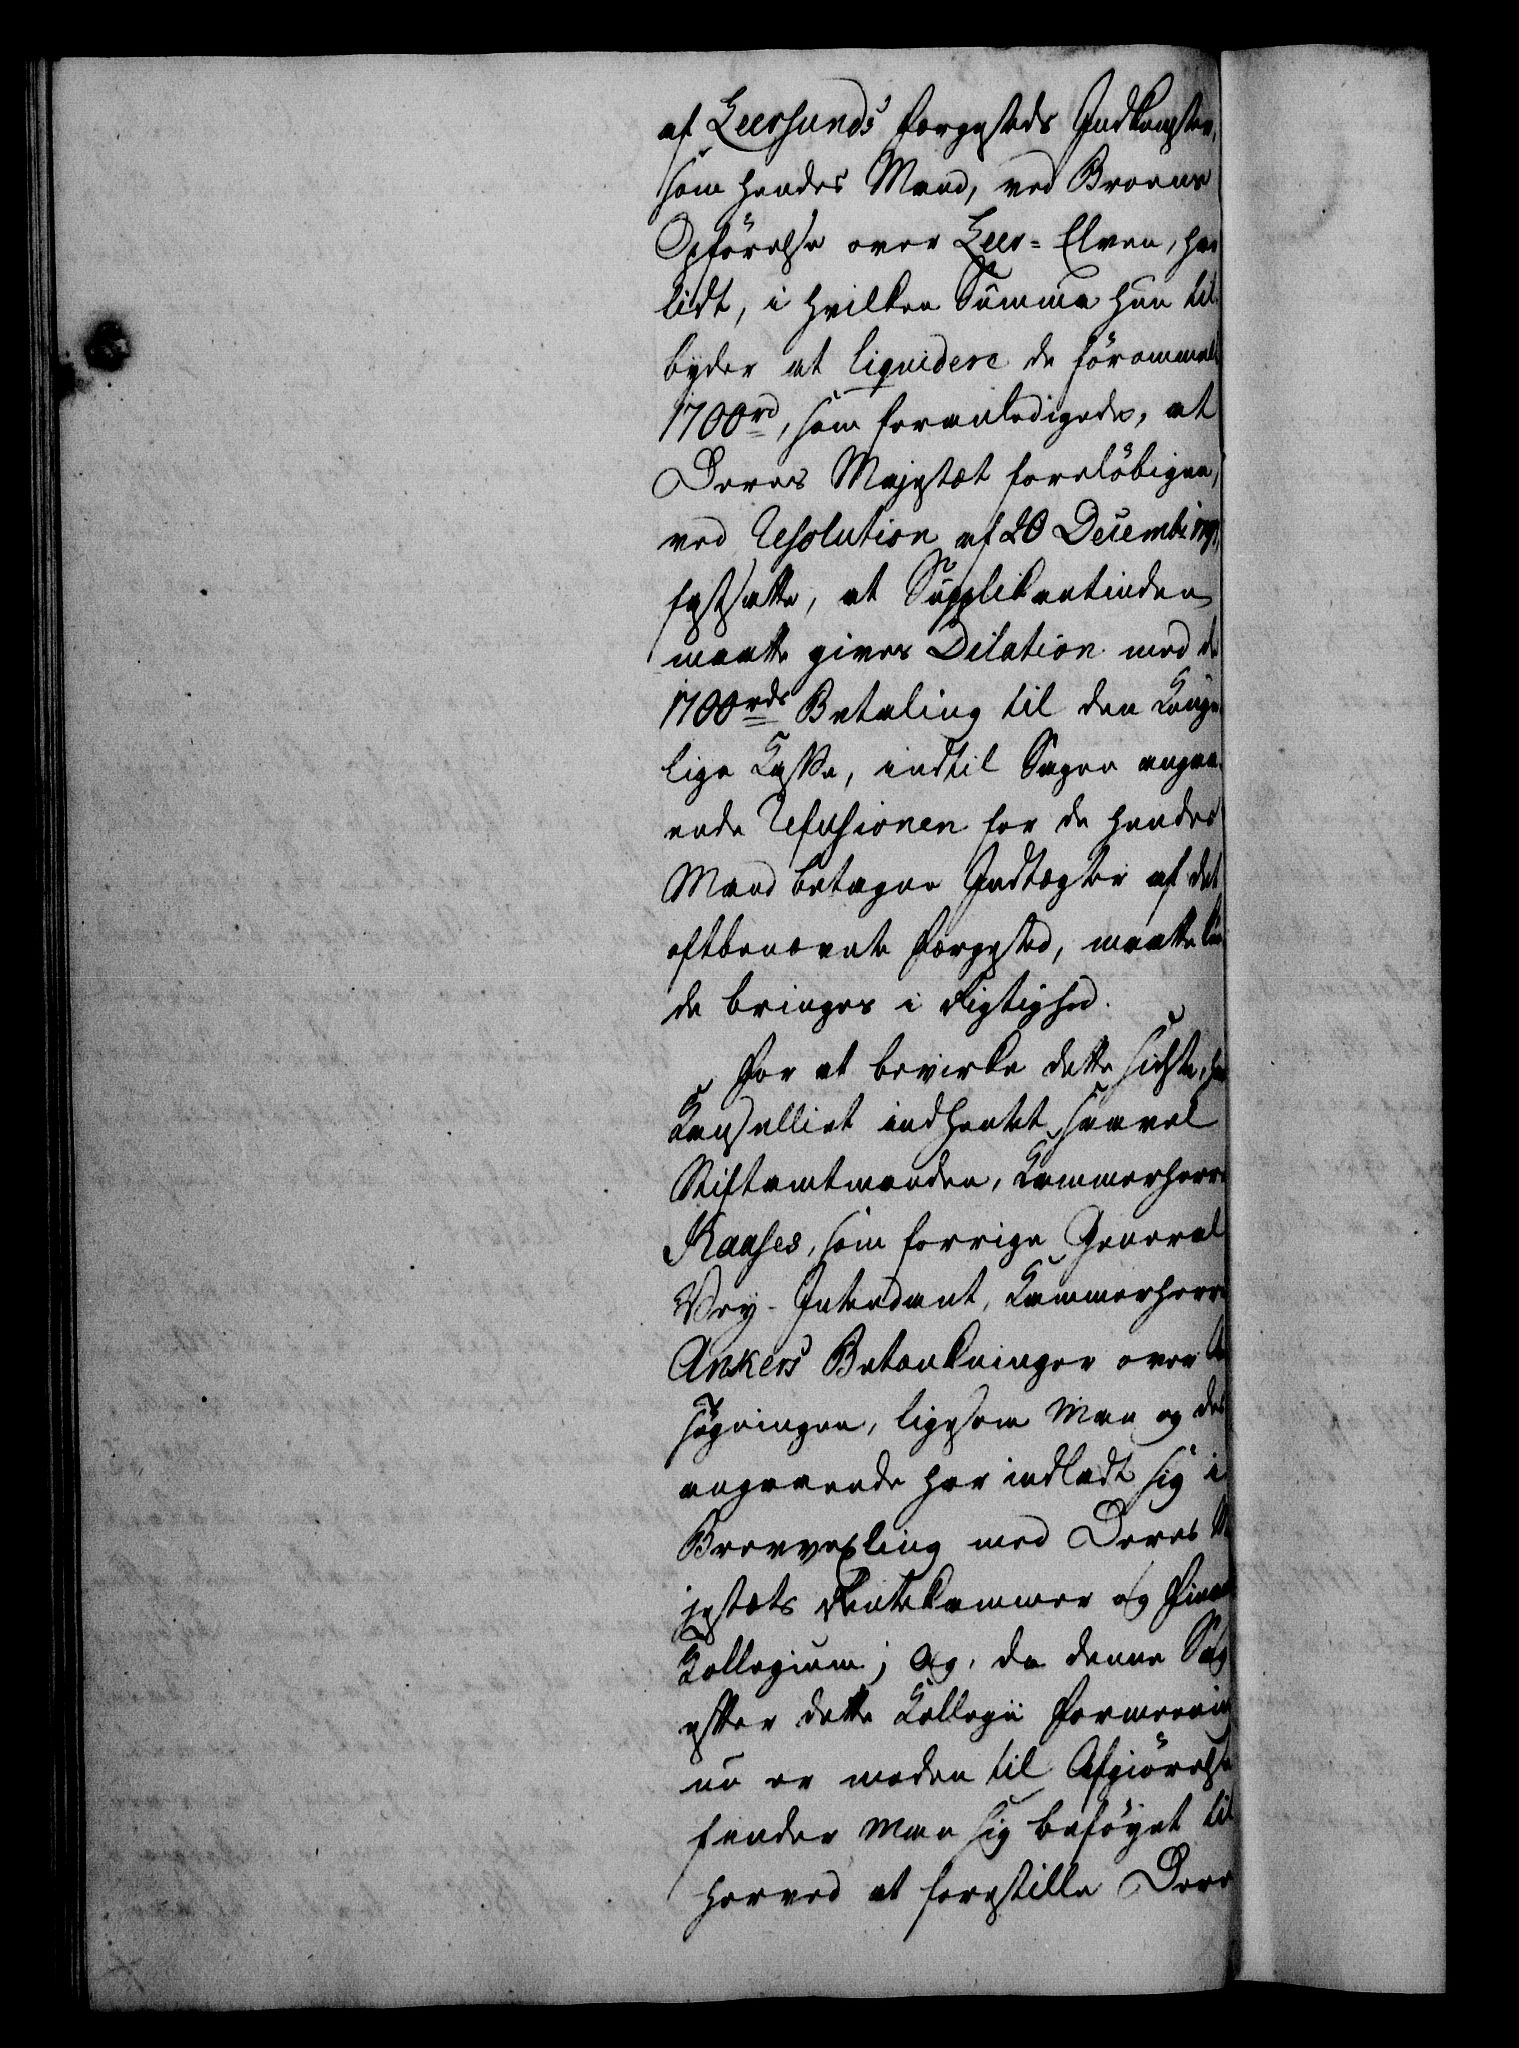 af Leersunds Færgesteds Indkomster,
som hendes Mand, ved Broens
Opförelse over Leer-Elven, har
lidt, i hvilken Summa hun til-
byder at liquidere de förommeldte
1700 rd, som foranledigede, at
Deres Majestæt foreløbigen,
ved Resolution af 20 Decembr
fastsatte, at Supplikantinden
maatte gives Dilation med de
1700 rds Betaling til den Konge-
lige Kasse, indtil Sagen angaa-
ende Refusionen for de hendes
Mand betagne Indtægter af det
oftbenævnte Færgested, maatte kun-
de bringes i Rigtighed.
For at bevirke dette sidste, har
Kanselliet indhentet saavel
Stiftamtmanden, Kammerherre
Kaases, som forrige General
Vey-Intendant, Kammerherre
Ankers Betænkninger over An-
søgningen, ligesom Man og des-
angaaende har indladt sig i
Brevvexling med Deres Ma-
jestæts Rentekammer og Finants
Kollegium; Og, da denne Sag
efter dette Kollegii Formeening
nu er moden til Afgiörelse
finder Man sig beföyet til
herved at forestille Deres